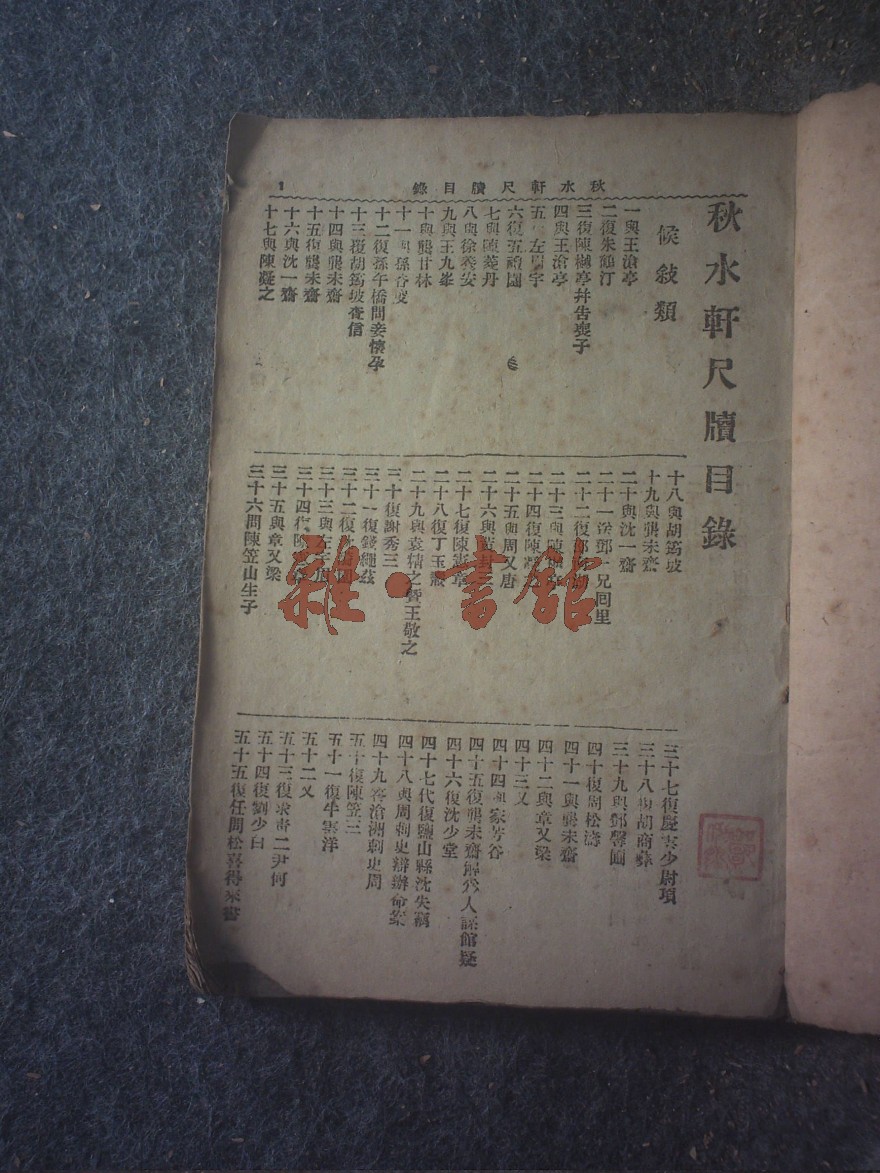 秋水軒尺牘目錄
1
秋水軒尺牘目錄
候敍類
一與王滄亭
二復朱鶴汀
三復陳樾亭幷告喪子
四與王滄亭
五 左 宇
六復 禮園
七與陳菱舟
八與徐 安
九與王九峯
十與龔甘林
十一與孫谷
十二復孫午橋問妾懷孕
十三復胡筠坡查信
十四與龔未齋
十五復龔未齋
十六與沈一齋
十七與陳凝之
十八與胡筠坡
十九與龔未齋
二十與沈一齋
二十一送鄧 兄囘里
二十二復
二十三與陳
二十四復陳
二十五與周又唐
二十六與
二十七復陳
二十八復丁玉
二十九與袁 之暨王敬之
三十復謝秀三
三十一復錢繩茲
三十二復
三十三與左
三十四復陳
三十五與章又梁
三十六問陳笠山生子
三十七復慶 少尉項
三十八復胡商彝
三十九與鄧馨圃
四十復周松濤
四十一與龔未齋
四十二與章又梁
四十三又
四十四與家芳谷
四十五復龔未齋 人謀館疑
四十六復沈少堂
四十七代復鹽山縣沈失竊
四十八與周刺史辯辦命案
四十九 滄洲刺史周
五十復陳笠三
五十一復牛雲洋
五十二又
五十三復 二尹何
五十四復劉少白
五十五復任問松喜得來書
雜·書館